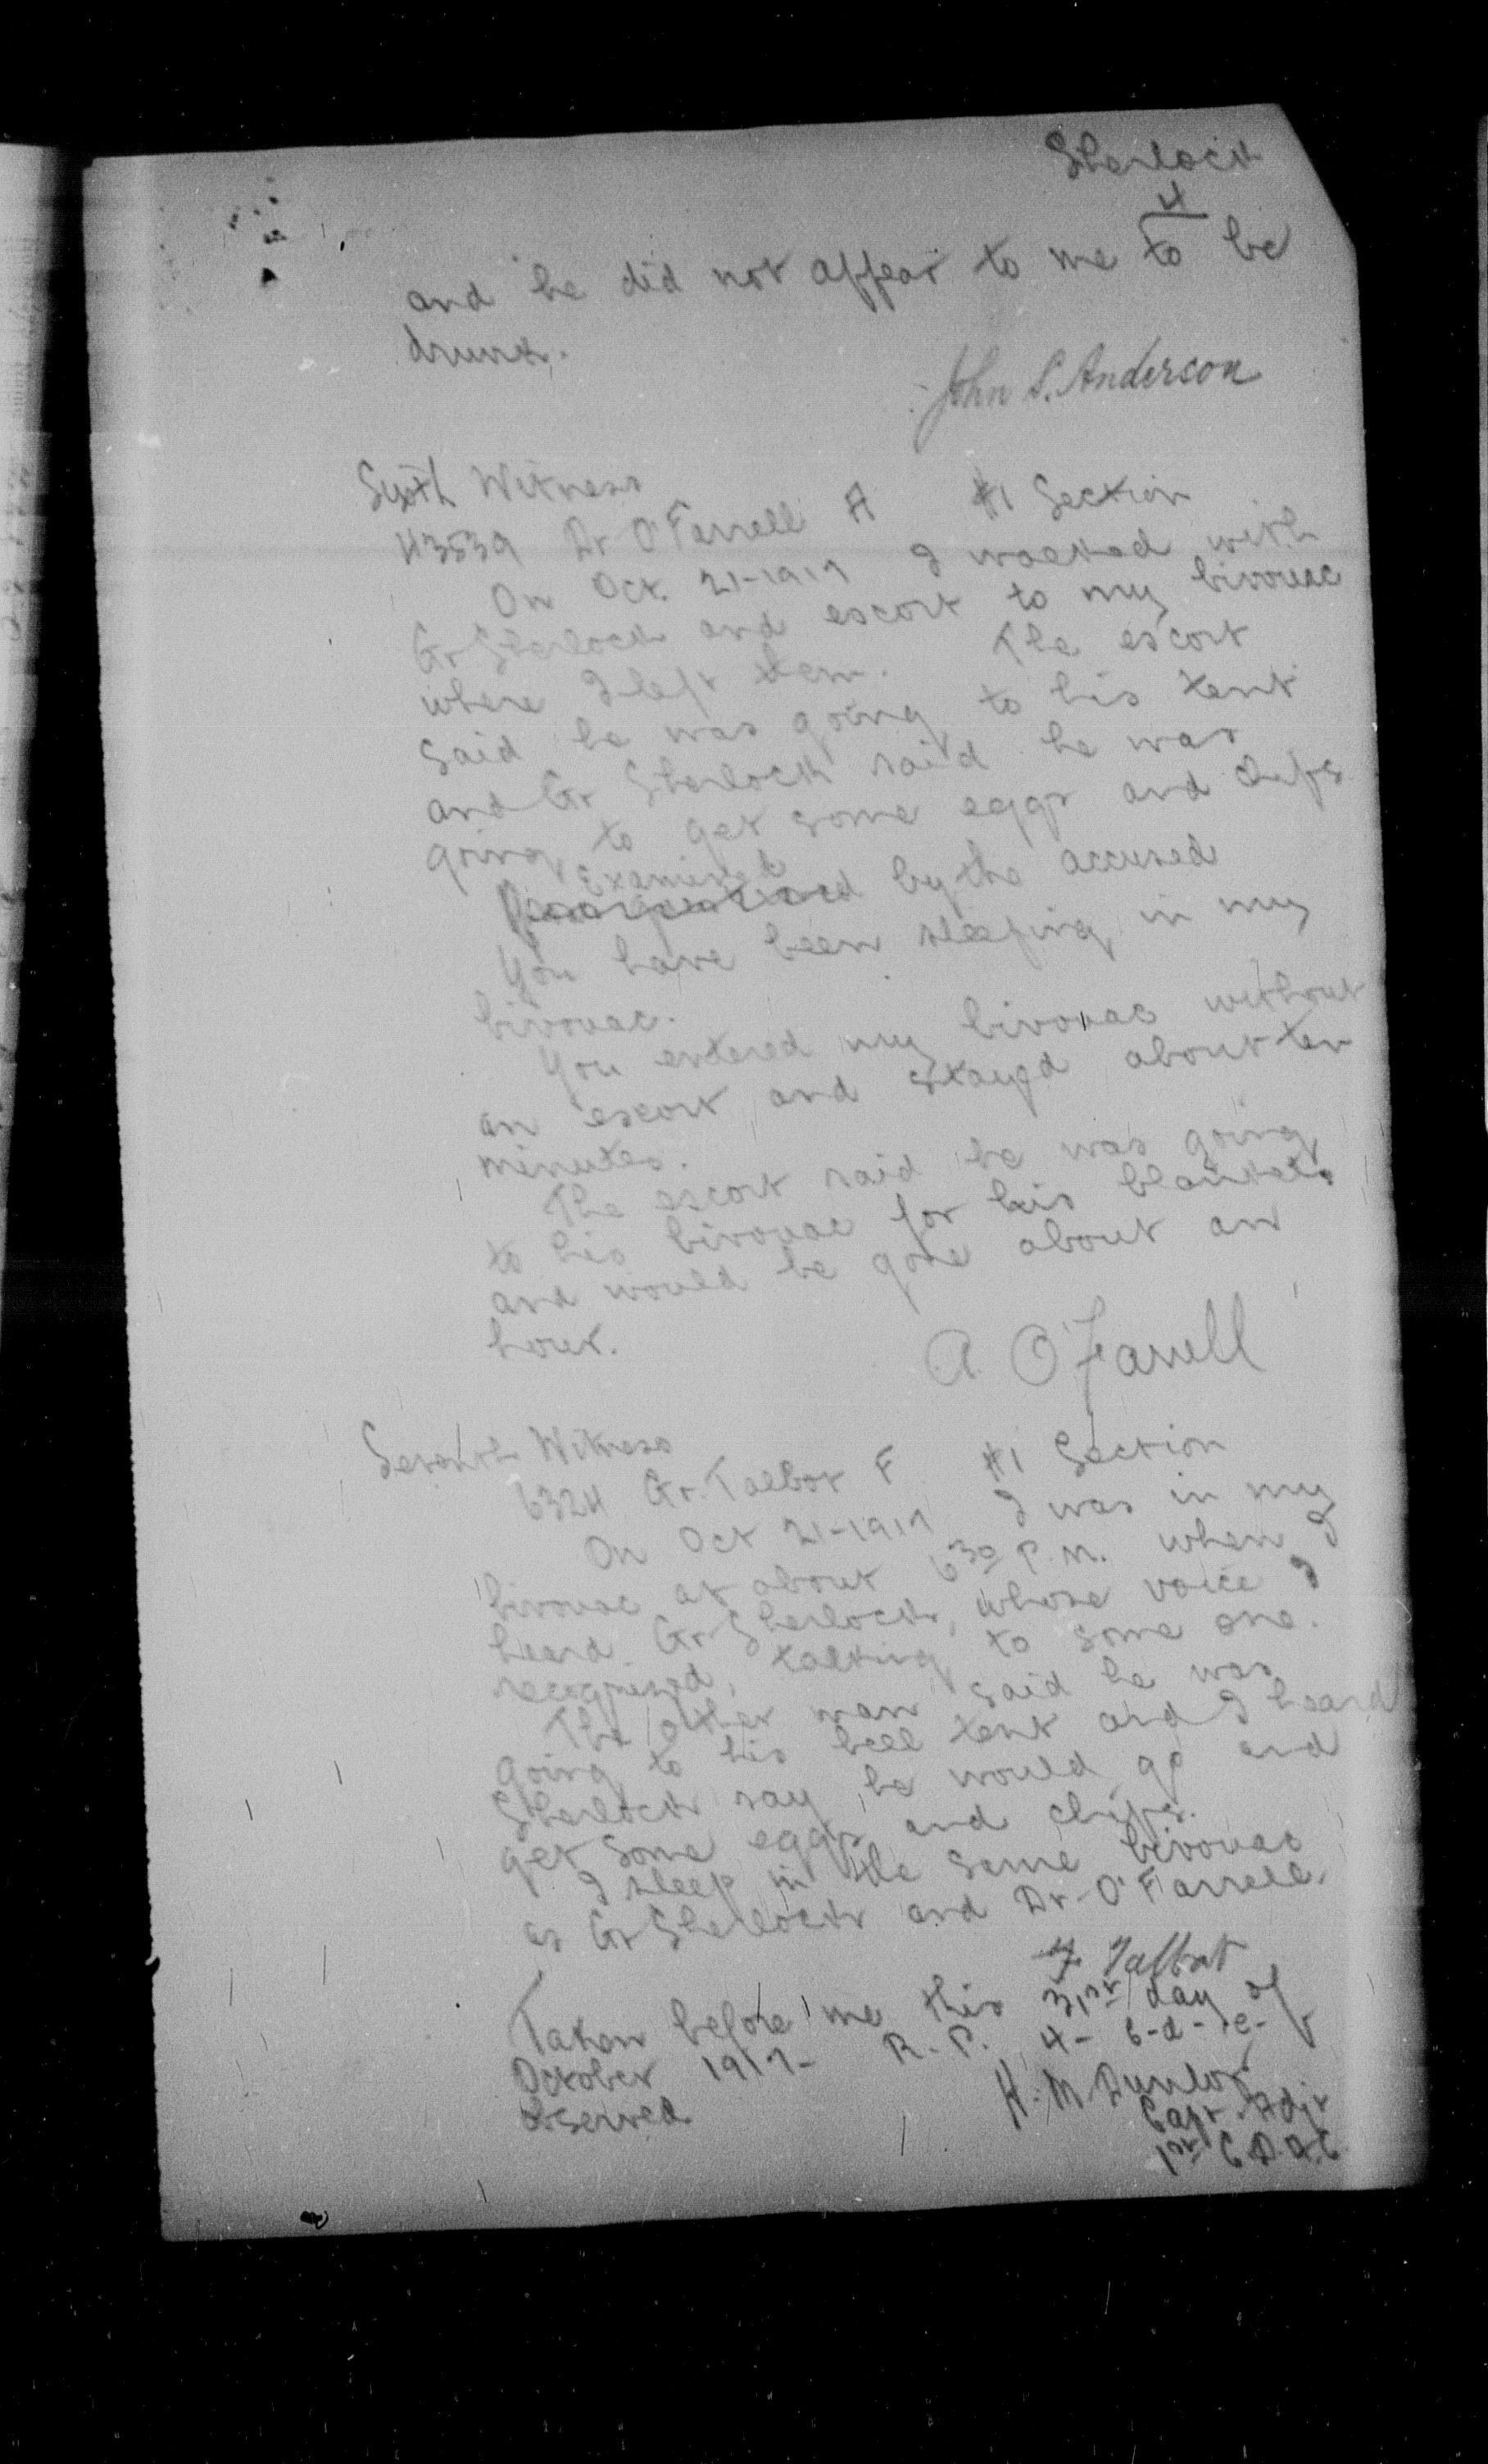 Sherlock
4
and he did not appear to me to be
drunk.
John S. Anderson
Sixth Witness
43539 Dr O'Farrell A #1 Section
On Oct. 21-1917 I walked with
Gr Sherlock and escort to my bivouac
where I left them. The escort
said he was going to his tent
and Gr Sherlock said he was
going to get some eggs and chips
Examined by the accused
You have been sleeping in my
bivouac.
You entered my bivouac without
an escort and stayed about ten
minutes.
The escort said he was going
to his bivouac for his blankets
and would be gone about an
hour.
A. O'Farrell
Seventh Witness
6324 Gr. Talbot F #1 Section
On Oct 21-1917 I was in my
bivouac at about 6 30 P.M. when I
heard Gr Sherlock, whose voice I
recognized, talking to some one.
The other man said he was
going to his bell tent and I heard
Sherlock say he would go and
get some eggs and chips.
I sleep in the same bivouac
as Gr Sherlock and Dr O'Farrell.
F. Talbot
Taken before me this 31st day of
October 1917- R.P. 4- 6-d- e-
observed
H. M. Dunlop
Capt. Adjt
1st C.D.A.C.